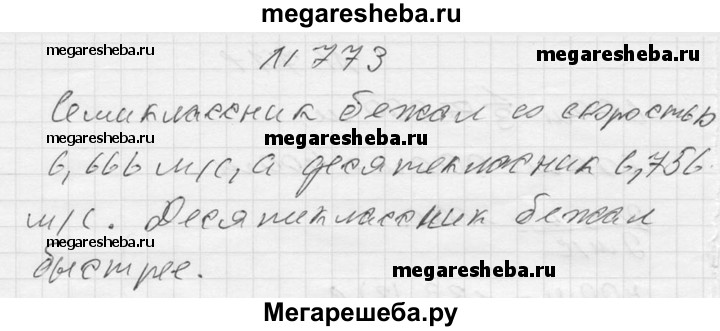 megaresheba.ru
megaresheba.ru
N 773
megaresheba.ru
Семиклассник бежал со скоростью
megaresheba.ru
6,666 м/с, а десятиклассник 6,756
м/с. Десятиклассник бежал
быстрее.
megaresheba.ru
Мегарешеба.ру